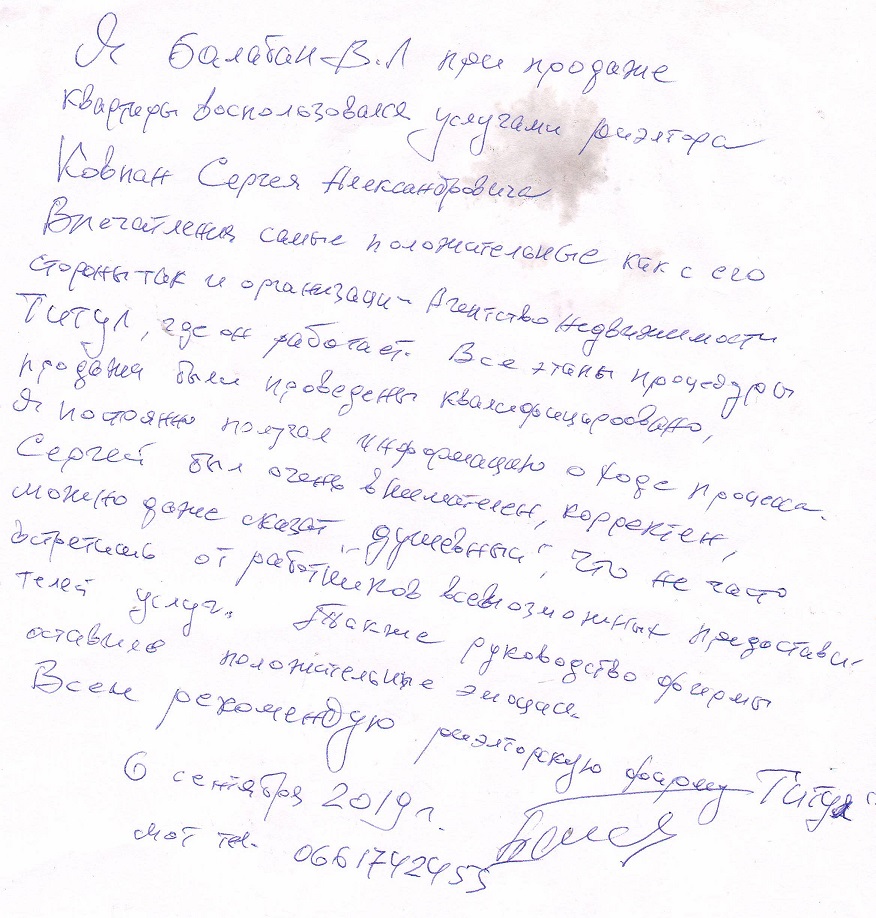 Я Балабан В.Л при продаже
квартиры воспользовался услугами риэлтора
Ковпан Сергея Александровича
Впечатления самые положительные как с его
стороны так и организаци- Агентство Недвижимости
Титул, где он работает. Все этапы процедуры
продажи были проведены квалифицировано,
Я постоянно получал информацию о ходе процесса.
Сергей был очень внимателен, корректен,
можно даже сказат "душевный", что не часто
встретишь от работников всевозможных предостави-
телей услуг. Также руководство фирмы
оставило положительные эмоции.
Всем рекомендую риэлторскую фирму Титул.
6 сентября 2019 г.
мот тел. 0661742455